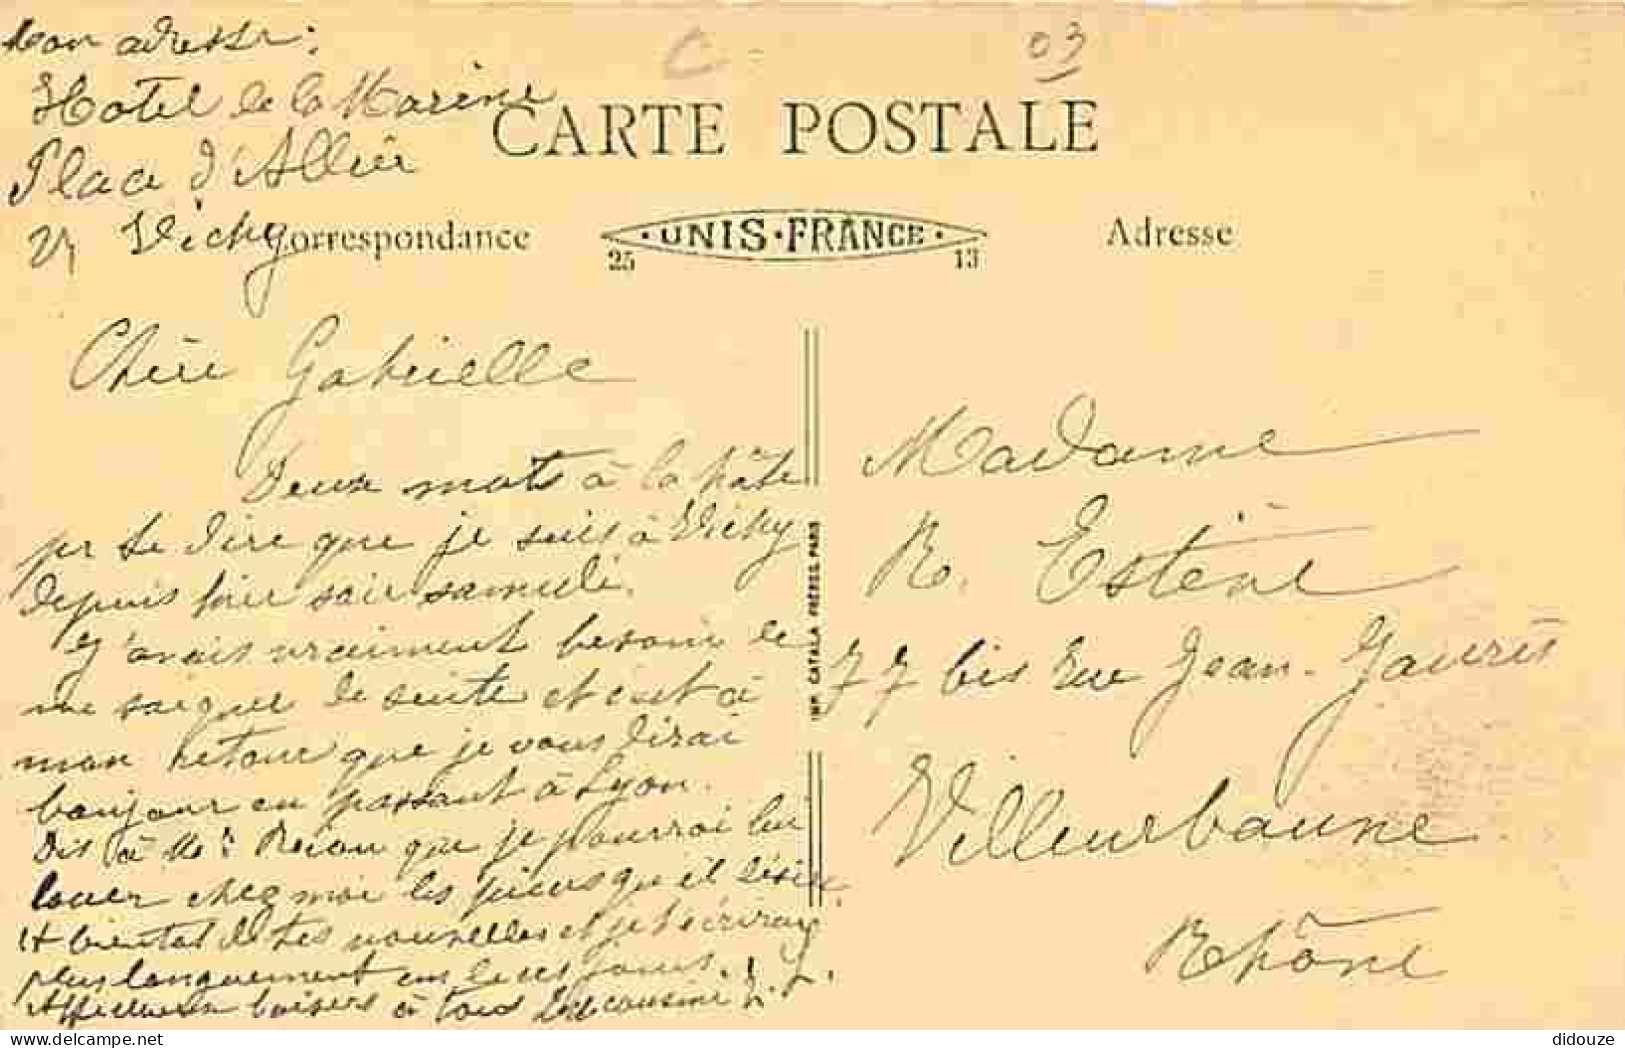 Mon adresse :
Hotel de la Marine
Place d'Allier
Vichy
C
03
CARTE POSTALE
Correspondance
UNIS·FRANCE
25 13
Adresse
Chère Gabrielle
Deux mots à la hâte
pr te dire que je suis à Vichy
depuis hier soir samedi.
J'avais vraiment besoin de
me soigner de suite et c'est à
mon retour que je vous dirai
bonjour en passant à Lyon.
Dis à Mr que je pourrai lui
louer chez moi les pièces qu'il désire.
A bientot de tes nouvelles et je t'écrirai
plus longuement un de ces jours.
Affectueux baisers à tous Ta cousine
IMP. CATALA FRÈRES, PARIS
Madame
R. Estène
77 bis rue Jean-Jaurès
Villeurbanne
Rhône
didouze
delcampe.net